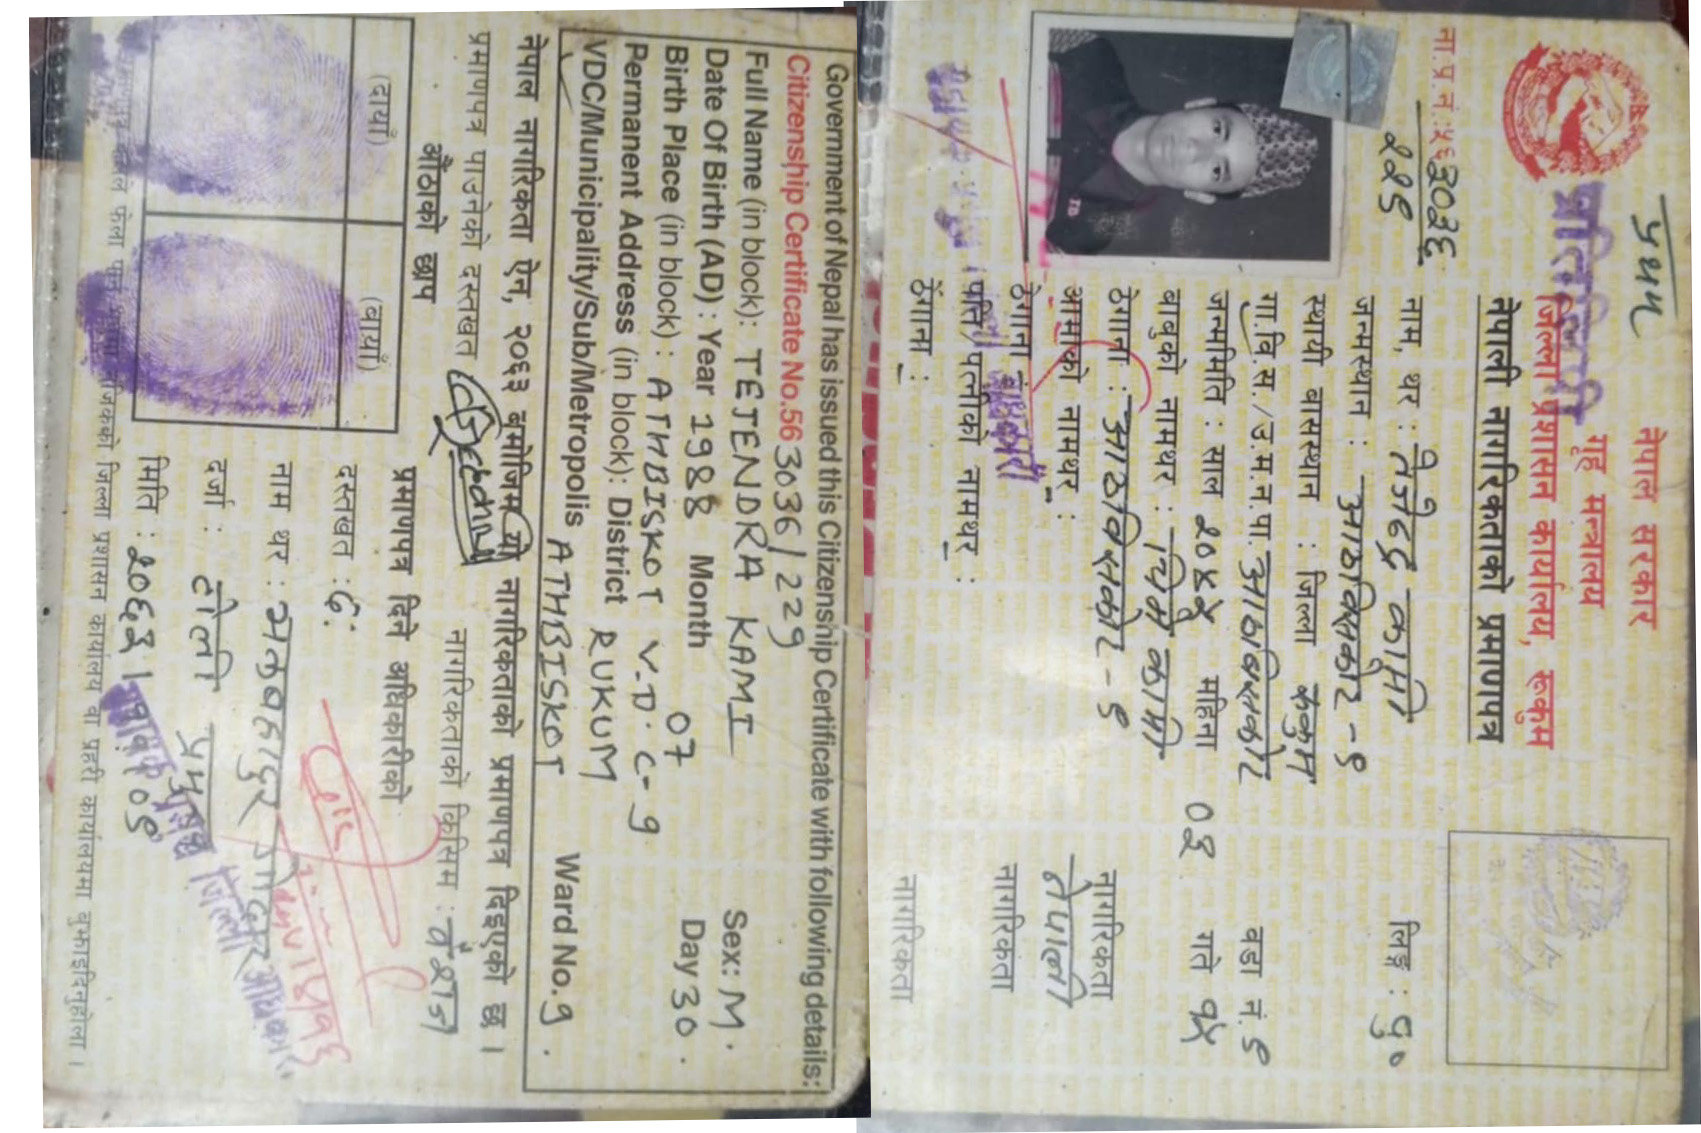 नेपाल सरकार
गृह मन्त्रालय
जिल्ला प्रशासन कार्यालय, रूकुम
नेपाली नागरिकताको प्रमाणपत्र
प्रतिलिपी
ना.प्र.नं.:५६३०३६
२२९
नाम, थर : तेजेन्द्र कामी लिङ्ग : पु०
जन्मस्थान : आठविसकोट - ९
स्थायी बासस्थान : जिल्ला रुकुम
गा.वि.स./उ.म.न.पा. आठविसकोट वडा नं. ९
जन्ममिति : साल २०४५ महिना ०४ गते १५
बाबुको नामथर : कामी नागरिकता
ठेगाना : आठविसकोट - ९ नेपाली
आमाको नामथर : नागरिकता
ठेगाना :
पति/पत्नीको नामथर : नागरिकता
ठेगाना :
Government of Nepal has issued this Citizenship Certificate with following details:
Citizenship Certificate No.563036/229
Full Name (in block): TEJENDRA KAMI Sex: M.
Date Of Birth (AD) : Year 1988 Month 07 Day 30.
Birth Place (in block) : ATHBISKOT V.D.C-9
Permanent Address (in block): District RUKUM
VDC/Municipality/Sub/Metropolis ATHBISKOT Ward No.9.
नेपाल नागरिकता ऐन, २०६३ बमोजिम यो नागरिकताको प्रमाणपत्र दिइएको छ ।
प्रमाणपत्र पाउनेको दस्तखत नागरिकताको किसिम : वंशज
औंठाको छाप
(दायाँ) (बायाँ)
प्रमाणपत्र दिने अधिकारीको
दस्तखत : द:
नाम थर :
दर्जा : टोली प्रमुख
मिति : २०६३।११।०९
जिल्ला प्रशासन कार्यालय वा प्रहरी कार्यालयमा बुझाइदिनुहोला ।